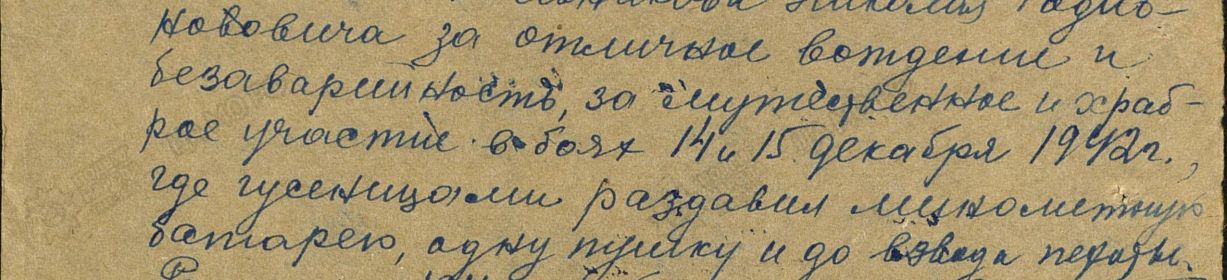 Николая Родио-
новича за отличное вождение и
безаварийность, за мужественное и храб-
рое участие в боях 14 и 15 декабря 1942г.,
где гусеницами раздавил минометную
батарею, одну пушку и до взвода пехоты.